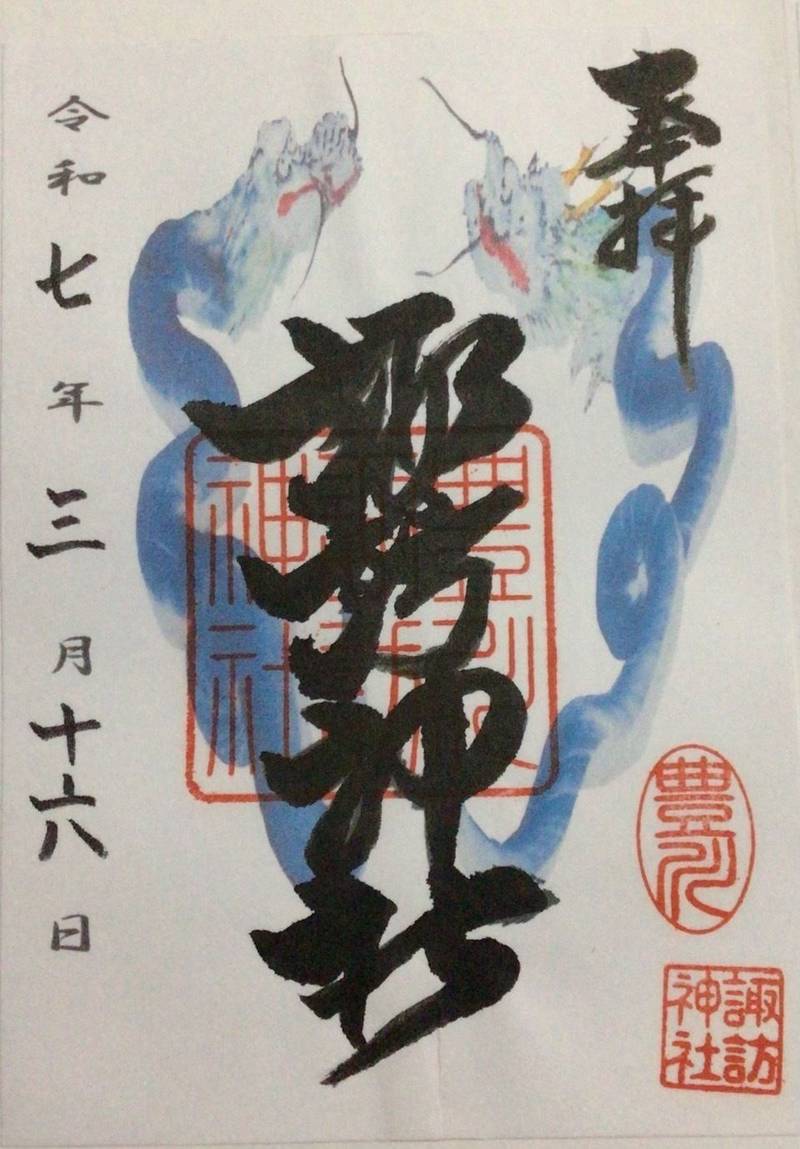 奉拝
諏訪神社
令和七年三月十六日
神社
諏訪
神社